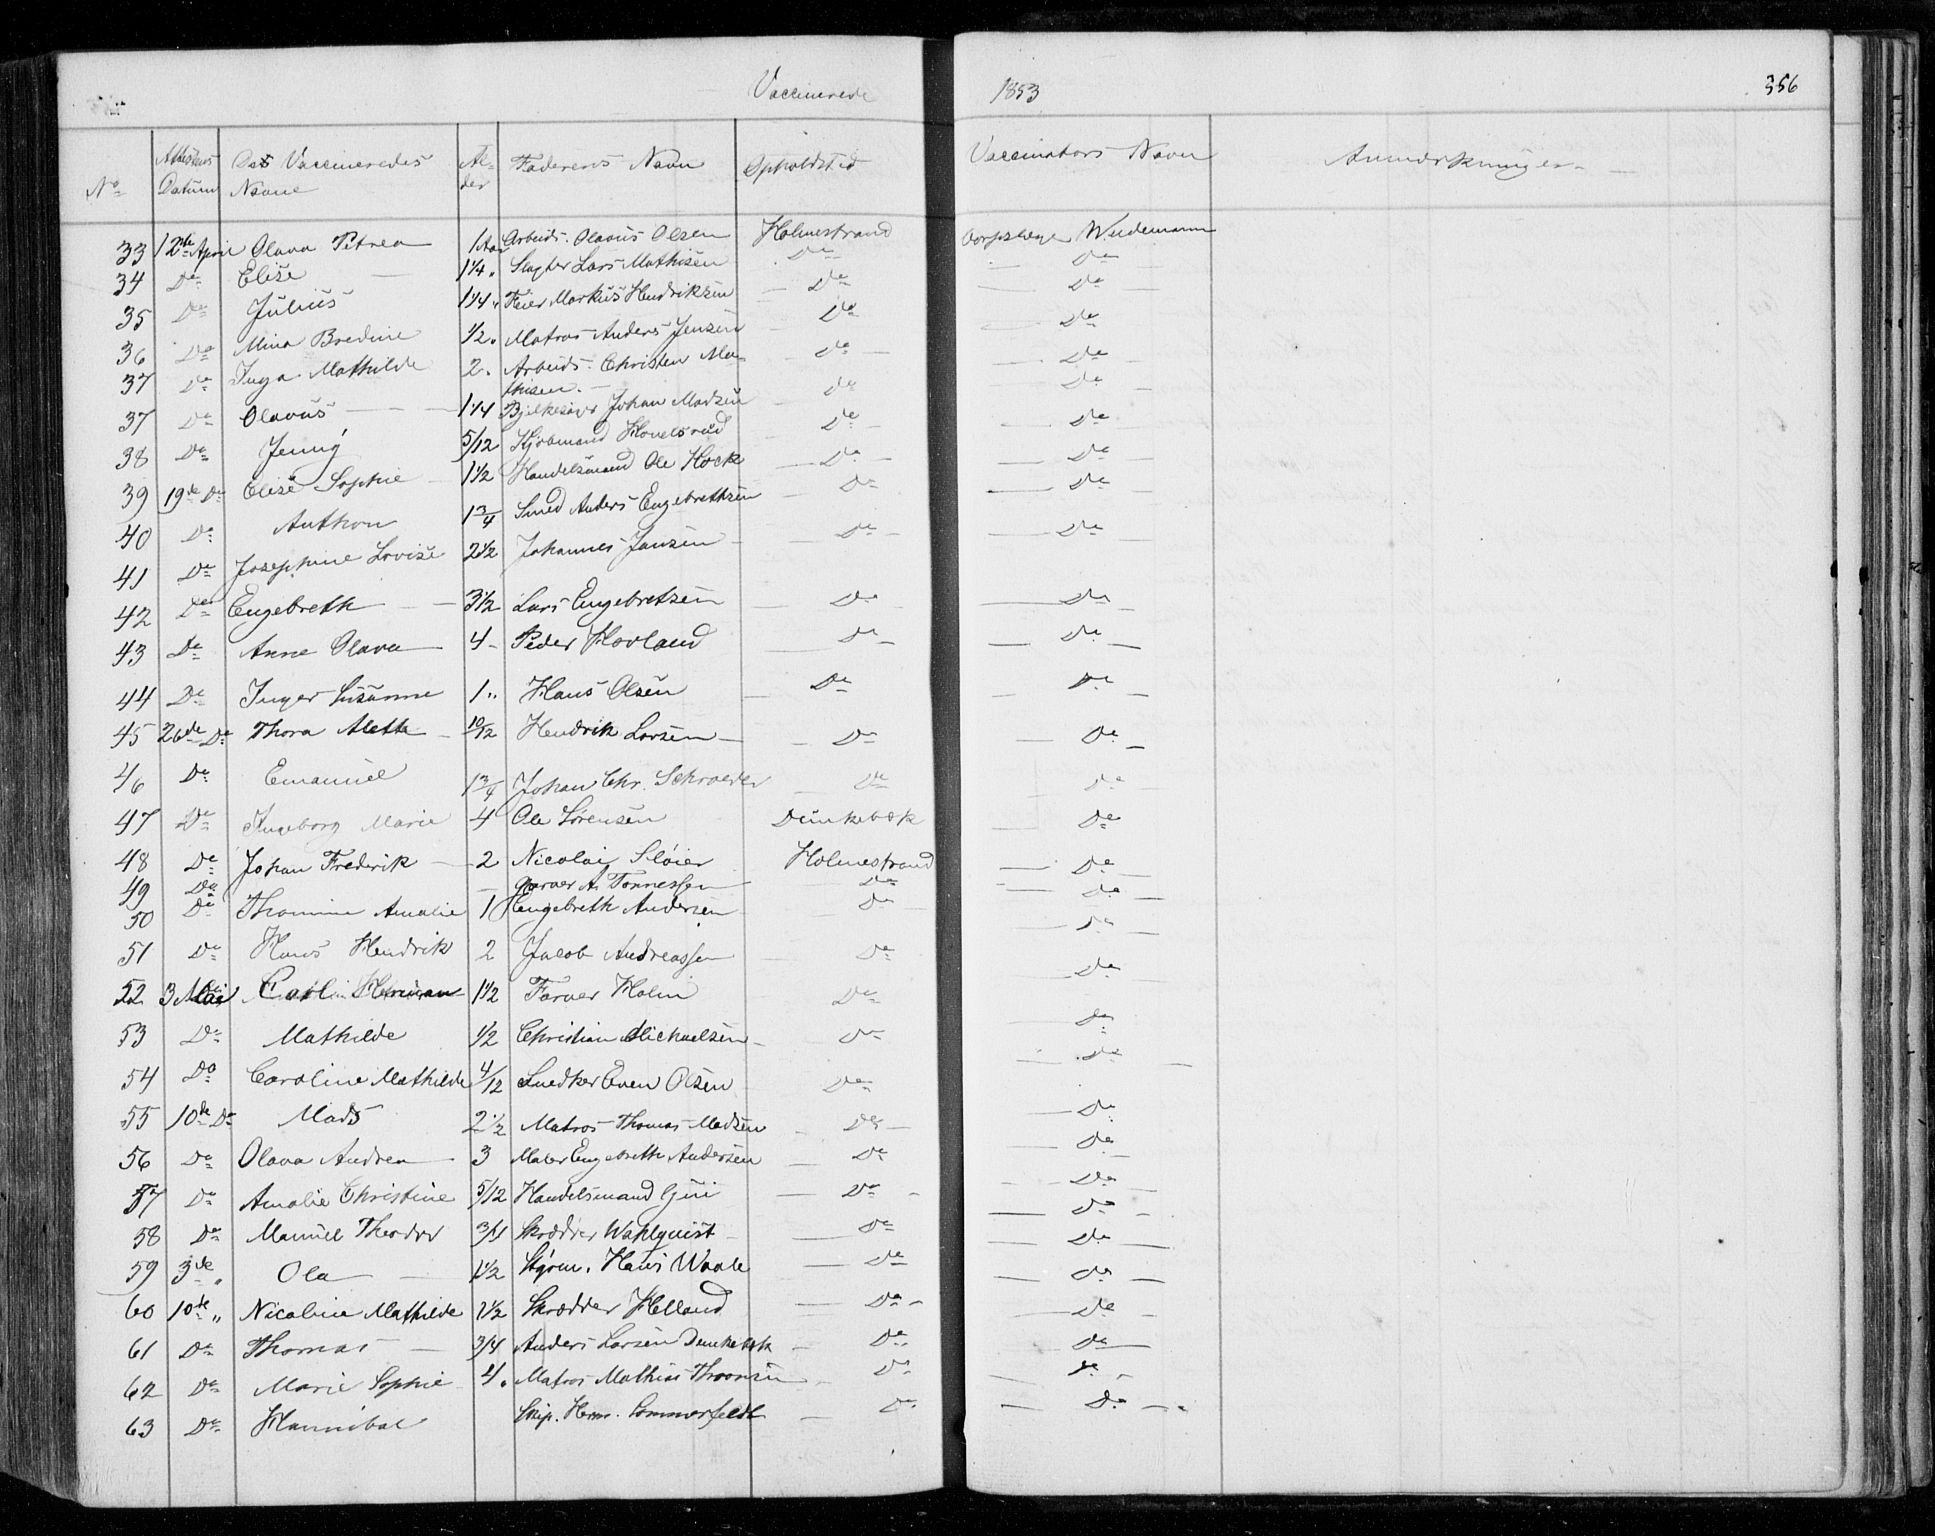 Vaccinerede 1853 356
No Attestens Datum Dets Vaccineredes Navne Al- der Faderens Navn Opholdsted Vaccinators Navn Anmærkninger
33 12te April Olava Petrea 1 Aar Arbeids. Olavus Olsen Holmestrand Corpslæge Weidemann
34 Do Elise 1 1/4 " Slagter Lars Mathisen Do Do
35 Do Julius 1 1/4 " Feier Markus Hendriksen Do Do
36 Do Mina Bredine 1/2 " Matros Anders Jensen Do Do
37 Do Inga Mathilde 2 " Arbeids. Christen Ma- Do Do
thisen
37 Do Olavus 1 1/4 Bjelkesager Johan Madsen Do Do
38 Do Jenny 5/12 Kjøbmand Hovelsrud Do Do
39 19de Do Elise Sophie 1 1/2 Handelsmand Ole Hock Do Do
40 Do Anthon 1 3/4 Smed Anders Engebrethsen Do Do
41 Do Josephine Lovise 2 1/2 Johannes Jansen Do Do
42 Do Engebreth 3 1/2 Lars Engebretsen Do Do
43 Do Anne Olava 4 Peder Hovland Do Do
44 Do Inger Susanne 1 " Hans Olsen Do Do
45 26de Do Thora Aleth 10/12 Hendrik Larsen Do Do
46 Do Emanuel 1 3/4 Johan Chr. Schroeder Do Do
47 Do Ingeborg Marie 4 Ole Sørensen Dunkebæk Do
48 Do Johan Frederik 2 Nicolai Sløier Holmestrand Do
49 Do — garver A. Tønnessen Do Do
50 Do Thomine Amalie 1 Engebreth Andersen Do Do
51 Do Hans Hendrik 2 Jacob Andreassen Do Do
52 3 Mai Carl Herman 1 1/2 Farver Holm Do Do
53 Do Mathilde 1/2 Christian Michaelsen Do Do
54 Do Caroline Mathilde 4/12 Snedker Even Olsen Do Do
55 10de Do Mads 2 1/2 Matros Thomas Madsen Do Do
56 Do Olava Andrea 3 Maler Engebreth Andersen Do Do
57 Do Amalie Christine 5/12 Handelsmand Do Do
58 Do Manuel Theodor 3/4 Skrædder Wahlquist Do Do
59 3de " Ola 1 1/2 Styrm. Hans Waale Do Do
60 10de " Nicoline Mathilde 1 1/2 Skrædder Helland Do Do
61 Do Thomas 3/4 Anders Larsen Dunkebæk Do Do
62 Do Marie Sophie 4 " Matros Mathias Thoresen Do Do
63 Do Hannibal Skip. Herm. Sommerfeldt Do Do